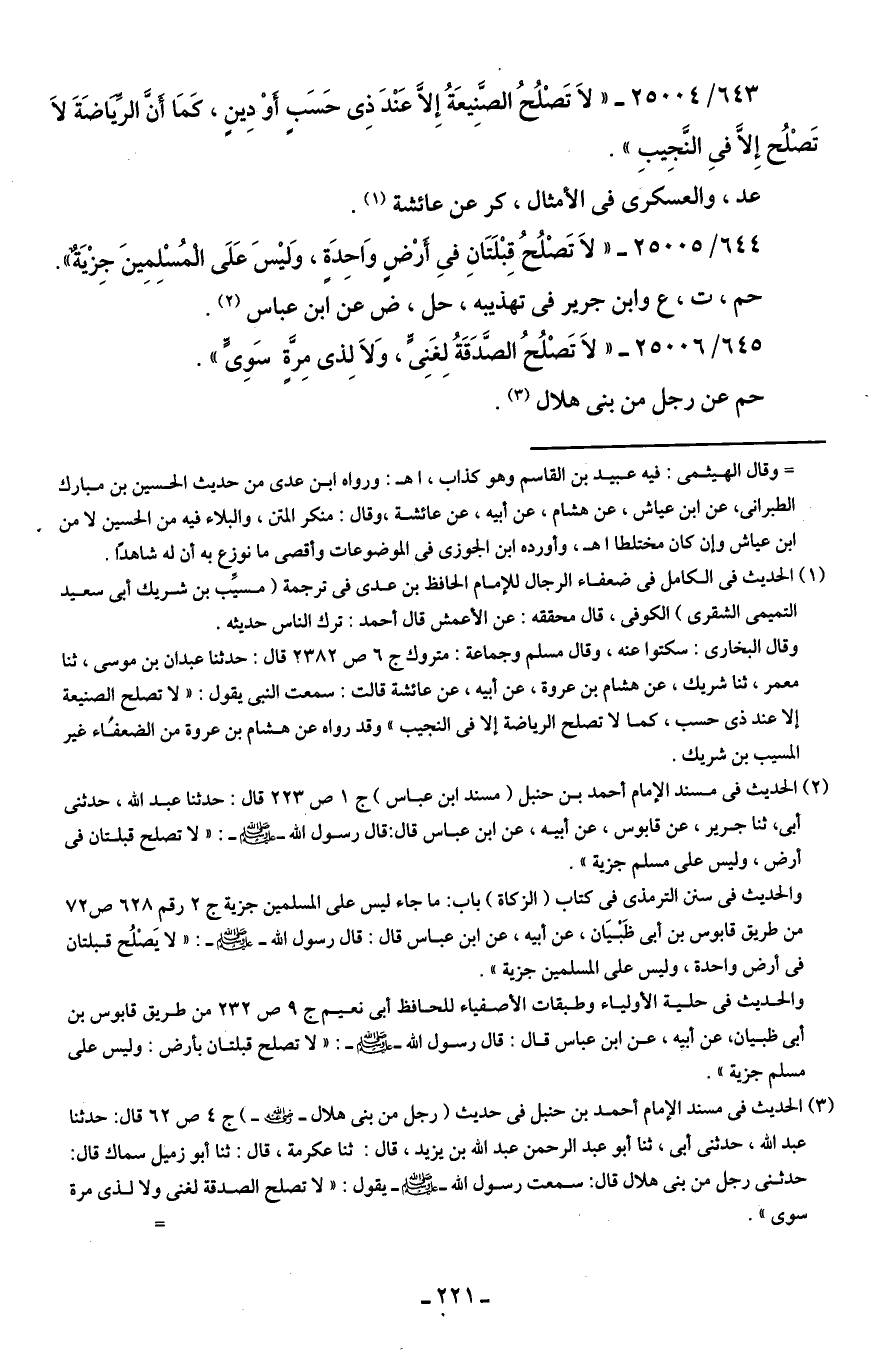 ٢٥٠٠٤/٦٤٣ ـ « لاَ تَصْلُحُ الصَّنِيعَةُ إِلاَّ عَنْدَ ذِى حَسَبٍ أَوْ دِينٍ ، كَمَا أَنَّ الرِّيَاضَةَ لاَ
تَصْلُح إِلاَّ فىِ النَّجِيبِ » .
عد ، والعسكرى فى الأمثال ، كر عن عائشة (١) .
٢٥٠٠٥/٦٤٤ ـ « لاَ تَصْلُحُ قِبْلَتَانِ فىِ أَرْضٍ وَاحِدَةٍ ، وَلَيْسَ عَلَى الْمُسْلِمِينَ جِزْيَةٌ».
حم ، ت ، ع وابن جرير فى تهذيبه ، حل ، ض عن ابن عباس (٢) .
٢٥٠٠٦/٦٤٥ ـ « لاَ تَصْلُحُ الصَّدَقَةُ لِغَنِىٍّ ، وَلاَ لِذِى مِرَّةٍ سَوِىٍّ » .
حم عن رجل من بنى هلال (٣) .
= وقال الهيثمى : فيه عبيد بن القاسم وهو كذاب ، اهـ : ورواه ابن عدى من حديث الحسين بن مبارك
الطبرانى، عن ابن عياش ، عن هشام ، عن أبيه ، عن عائشة ،وقال : منكر المتن ، والبلاء فيه من الحسين لا من
ابن عياش وإن كان مختلطا اهـ ، وأورده ابن الجوزى فى الموضوعات وأقصى ما نوزع به أن له شاهدًا .
(١) الحديث فى الكامل فى ضعفاء الرجال للإمام الحافظ بن عدى فى ترجمة ( مسيِّب بن شريك أبى سعيد
التميمى الشقرى ) الكوفى ، قال محققه : عن الأعمش قال أحمد : ترك الناس حديثه .
وقال البخارى : سكتوا عنه ، وقال مسلم وجماعة : متروك ج ٦ ص ٢٣٨٢ قال : حدثنا عبدان بن موسى ، ثنا
معمر ، ثنا شريك ، عن هشام بن عروة ، عن أبيه ، عن عائشة قالت : سمعت النبى يقول : « لا تصلح الصنيعة
إلا عند ذى حسب ، كمـا لا تصلح الرياضة إلا فى النجيب » وقد رواه عن هشام بن عروة من الضعفاء غير
المسيب بن شريك .
(٢) الحديث فى مسند الإمام أحمد بن حنبل ( مسند ابن عباس ) ج ١ ص ٢٢٣ قال : حدثنا عبد الله ، حدثنى
أبى، ثنا جرير ، عن قابوس ، عن أبيه ، عن ابن عباس قال:قال رسول الله ـ ﷺ ـ : « لا تصلح قبلتان فى
أرض ، وليس على مسلم جزية » .
والحديث فى سنن الترمذى فى كتاب ( الزكاة ) باب: ما جاء ليس على المسلمين جزية ج ٢ رقم ٦٢٨ ص٧٢
من طريق قابوس بن أبى ظَبْيَان ، عن أبيه ، عن ابن عباس قال : قال رسول الله ـ ﷺ ـ : « لا يَصْلُح قبلتان
فى أرض واحدة ، وليس على المسلمين جزية » .
والحديث فى حلية الأولياء وطبقات الأصفياء للحافظ أبى نعيم ج ٩ ص ٢٣٢ من طريق قابوس بن
أبى ظبيان، عن أبيه ، عن ابن عباس قال : قال رسول الله ـ ﷺ ـ : « لا تصلح قبلتان بأرض : وليس على
مسلم جزية » .
(٣) الحديث فى مسند الإمام أحمد بن حنبل فى حديث ( رجل من بنى هلال ـ رضي الله عنه ـ ) ج ٤ ص ٦٢ قال: حدثنا
عبد الله ، حدثنى أبى ، ثنا أبو عبد الرحمن عبد الله بن يزيد ، قال : ثنا عكرمة ، قال : ثنا أبو زميل سماك قال:
حدثنى رجل من بنى هلال قال: سمعت رسول الله ـ ﷺ ـ يقول : « لا تصلح الصدقة لغنى ولا لذى مرة
سوى » . =
ـ ٢٢١ ـ